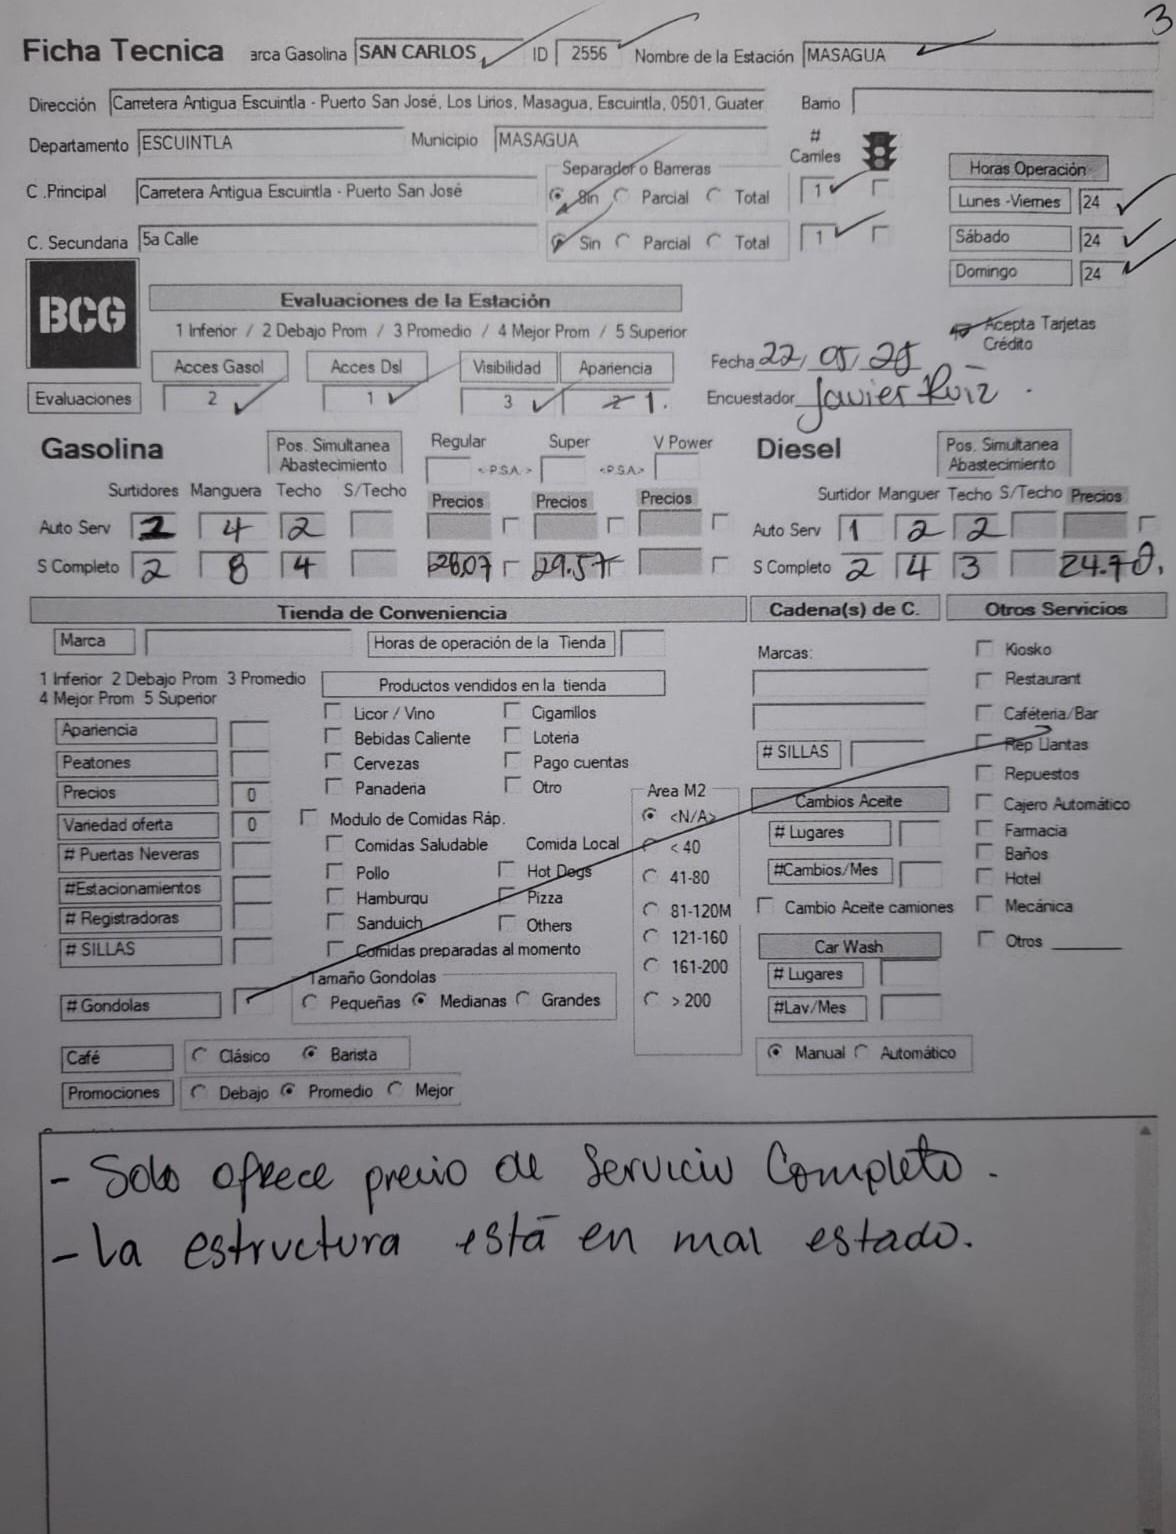 3
Ficha Tecnica arca Gasolina SAN CARLOS ID 2556 Nombre de la Estación MASAGUA
Dirección Carretera Antigua Escuintla - Puerto San José, Los Lirios, Masagua, Escuintla, 0501, Guater Barrio
Departamento ESCUINTLA Municipio MASAGUA # Carriles
Separador o Barreras Horas Operación
C .Principal Carretera Antigua Escuintla - Puerto San José Sin Parcial Total 1 Lunes -Viernes 24
C. Secundaria 5a Calle Sin Parcial Total 1 Sábado 24
Domingo 24
BCG
Evaluaciones de la Estación
1 Inferior / 2 Debajo Prom / 3 Promedio / 4 Mejor Prom / 5 Superior
Acepta Tarjetas
Crédito
Acces Gasol Acces Dsl Visibilidad Apariencia Fecha 22/05/25
Evaluaciones 2 1 3 1. Encuestador Javier Ruiz.
Gasolina Pos. Simultanea Abastecimiento Regular Super V Power Diesel Pos. Simultanea Abastecimiento
<-P.S.A.-> <-P.S.A.->
Surtidores Manguera Techo S/Techo Precios Precios Precios Surtidor Manguer Techo S/Techo Precios
Auto Serv 2 4 2 Auto Serv 1 2 2
S Completo 2 8 4 28.07 29.57 S Completo 2 4 3
Tienda de Conveniencia Cadena(s) de C. Otros Servicios
Marca Horas de operación de la Tienda Marcas: Kiosko
1 Inferior 2 Debajo Prom 3 Promedio
4 Mejor Prom 5 Superior
Productos vendidos en la tienda Restaurant
Apariencia Licor / Vino Cigarrillos Caféteria/Bar
Bebidas Caliente Loteria # SILLAS Rep Llantas
Peatones Cervezas Pago cuentas Repuestos
Precios 0 Panaderia Otro Area M2 Cambios Aceite Cajero Automático
Variedad oferta 0 Modulo de Comidas Ráp. <N/A> # Lugares Farmacia
# Puertas Neveras Comidas Saludable Comida Local < 40 Baños
#Estacionamientos Pollo Hot Dogs 41-80 #Cambios/Mes Hotel
# Registradoras Hamburgu Pizza 81-120M Cambio Aceite camiones Mecánica
# SILLAS Sanduich Others 121-160 Car Wash Otros
Comidas preparadas al momento 161-200 # Lugares
Tamaño Gondolas
# Gondolas Pequeñas Medianas Grandes > 200 #Lav/Mes
Café Clásico Barista Manual Automático
Promociones Debajo Promedio Mejor
- Solo ofrece precio de Servicio Completo.
- La estructura está en mal estado.